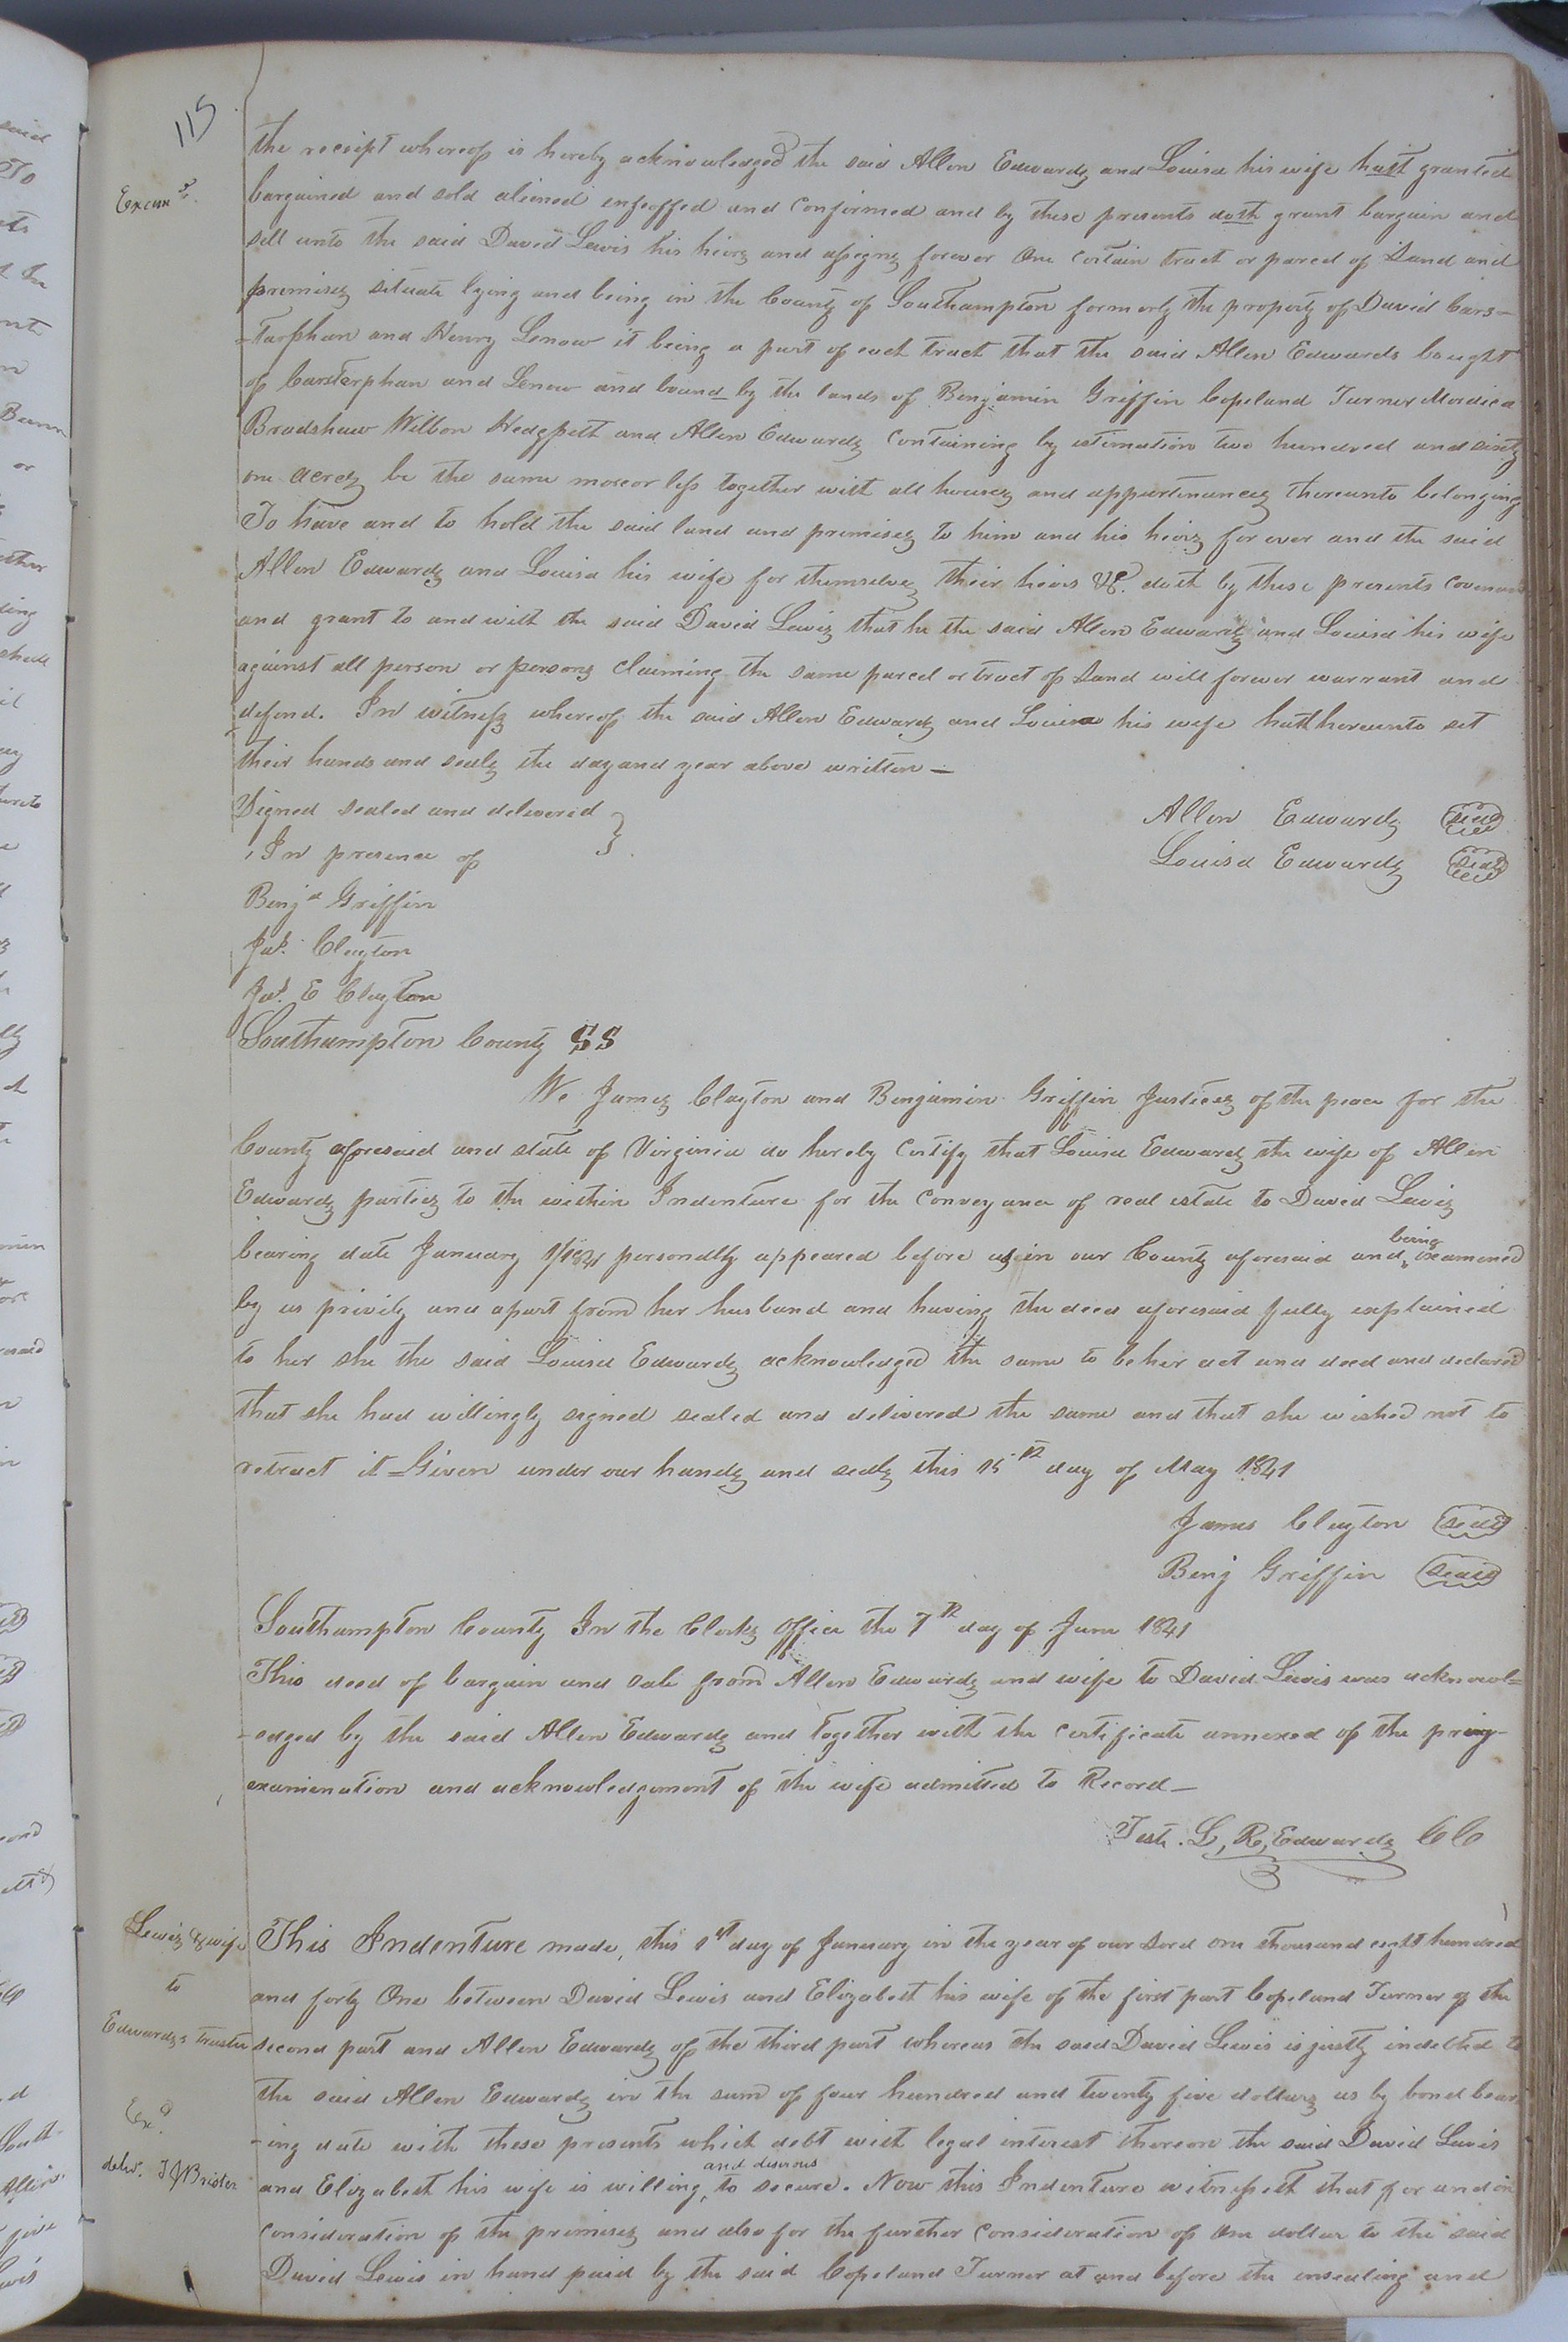 115
the receipt whereof is hereby acknowledged the said Allen Edwards and Louisa his wife hath granted
Examd.
bargained and sold aliened enfeoffed and confirmed and by these presents doth grant bargain and
sell unto the said David Lewis his heirs and assigns forever One certain tract or parcel of Land and
premises situate lying and being in the County of Southampton formerly the property of David Cars-
-tarphan and Henry Lenow it being a part of each tract that the said Allen Edwards bought
of Carstarphan and Lenow and bound by the lands of Benjamin Griffin Copeland Turner Mordica
Bradshaw Wilson Hedgpeth and Allen Edwards containing by estimation two hundred and sixty
one acres be the same more or less together with all houses and appurtenances thereunto belonging
To have and to hold the said land and premises to him and his heirs for ever and the said
Allen Edwards and Louisa his wife for themselves their heirs &c. doth by these presents covenant
and grant to and with the said David Lewis that he the said Allen Edwards and Louisa his wife
against all person or persons claiming the same parcel or tract of Land will forever warrant and
defend. In witness whereof the said Allen Edwards and Louisa his wife hath hereunto set
their hands and seals the day and year above written —
Signed sealed and delivered }
In presence of
Allen Edwards Seal
Louisa Edwards Seal
Benja Griffin
Jas. Clayton
Jas. E Clayton
Southampton County SS
We James Clayton and Benjamin Griffin Justices of the peace for the
County aforesaid and state of Virginia do hereby certify that Louisa Edwards the wife of Allen
Edwards parties to the within Indenture for the conveyance of real estate to David Lewis
bearing date January 1/1841 personally appeared before us in our County aforesaid and being examened
by us privily and apart from her husband and having the deed aforesaid fully explained
to her she the said Louisa Edwards acknowledged the same to be her act and deed and declared
that she had willingly signed sealed and delivered the same and that she wished not to
retract it Given under our hands and seals this 15th day of May 1841
James Clayton Seal
Benj Griffin Seal
Southampton County In the Clerks Office the 7th day of June 1841
This deed of bargain and sale from Allen Edwards and wife to David Lewis was acknowl=
-edged by the said Allen Edwards and together with the certificate annexed of the privy
examination and acknowledgement of the wife admitted to Record —
Test. L, R, Edwards CC
Lewis & wife
to
Edwards's trustee
Exd.
delv. T J Brister
This Indenture made, this 1st day of January in the year of our Lord one thousand eight hundred
and forty One between David Lewis and Elizabeth his wife of the first part Copeland Turner of the
second part and Allen Edwards of the third part whereas the said David Lewis is justly indebted to
the said Allen Edwards in the sum of four hundred and twenty five dollars as by bond bear
-ing date with these presents which debt with legal interest thereon the said David Lewis
and Elizabeth his wife is willing and desirous to secure. Now this Indenture witnesseth that for and in
consideration of the premises and also for the further consideration of one dollar to the said
David Lewis in hand paid by the said Copeland Turner at and before the ensealing and